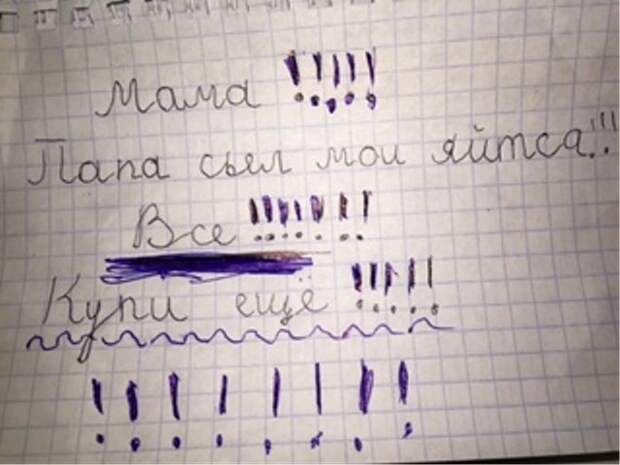 Мама !!!!!
Папа сьел мои яйтса!!!
Все!!!!!!!
Купи ещё !!!!!
!!!!!!!!